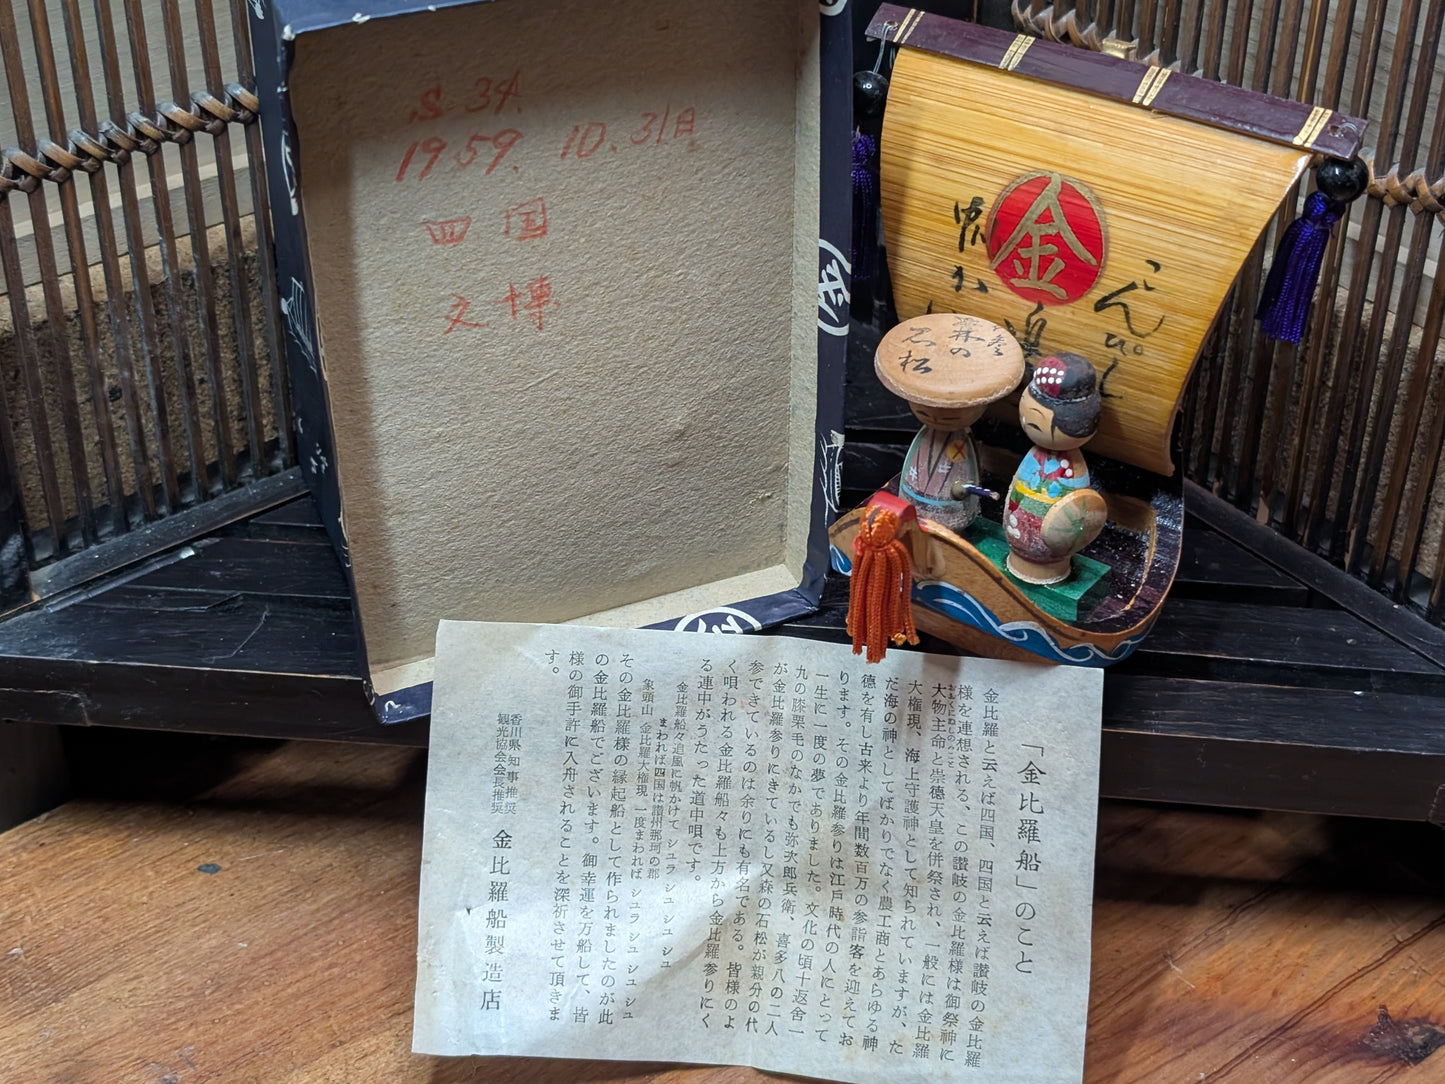 S.34.
1959. 10. 31日
四国
文博
金
こんぴら
代参
森の
石松
「金比羅船」のこと
金比羅と云えば四国、四国と云えば讃岐の金比羅
様を連想される、この讃岐の金比羅様は御祭神に
大物主命と崇徳天皇を併祭され、一般には金比羅
大権現、海上守護神として知られていますが、た
だ海の神としてばかりでなく農工商とあらゆる神
徳を有し古来より年間数百万の参詣客を迎えてお
ります。その金比羅参りは江戸時代の人にとって
一生に一度の夢でありました。文化の頃十返舎一
九の膝栗毛のなかでも弥次郎兵衛、喜多八の二人
が金比羅参りにきているし又森の石松が親分の代
参できているのは余りにも有名である。皆様のよ
く唄われる金比羅船々も上方から金比羅参りにく
る連中がうたった道中唄です。
金比羅船々追風に帆かけて シユラ シユ シユ
まわれば四国は讃州那珂の郡
象頭山 金比羅大権現 一度まわれば シユラシユ シユ シユ
その金比羅様の縁起船として作られましたのが此
の金比羅船でございます。御幸運を万船して、皆
様の御手許に入舟されることを深祈させて頂きま
す。
香川県知事推奨
観光協会会長推奨
金比羅船製造店